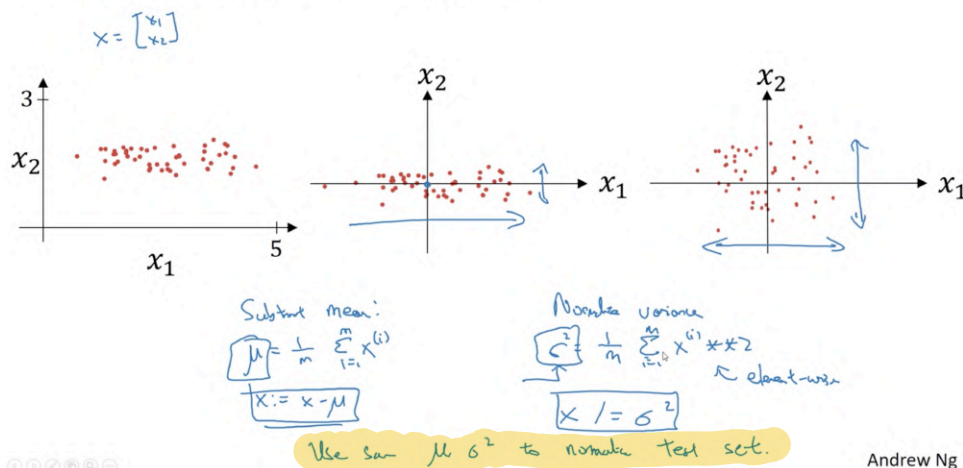 x = [x1
x2]
3
x2
x1
5
x2
x1
x2
x1
Subtract mean:
μ = 1/m Σ_{i=1}^{m} x^(i)
x := x - μ
Normalize variance
σ² = 1/m Σ_{i=1}^{m} x^(i) **2
element-wise
x /= σ²
Use same μ σ² to normalize test set.
Andrew Ng